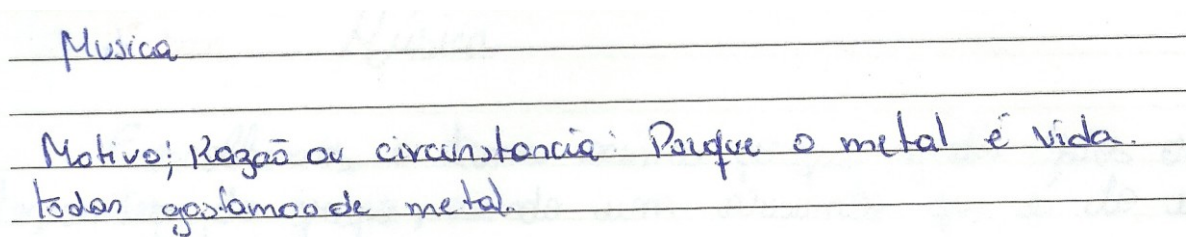 Musica
Motivo; Razaõ ou circunstancia: Porque o metal é vida.
todos gostamos de metal.